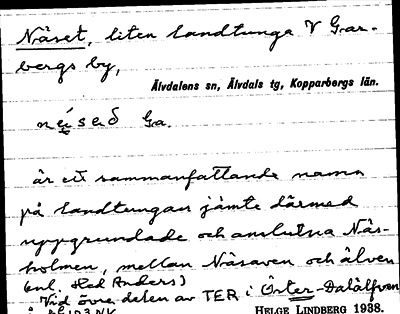 Näset, liten landtunga V Gar-
bergs by,
Älvdalens sn, Älvdals tg, Kopparbergs län.
Ga.
är ett sammanfattande namn
på landtungan jämte därmed
uppgrundade och anslutna Näs-
holmen, mellan Nåsaven och älven
Enl. Hed Anders)
Vid övre delen av TER i Öster-Dalälfven
HELGE LINDBERG 1938.